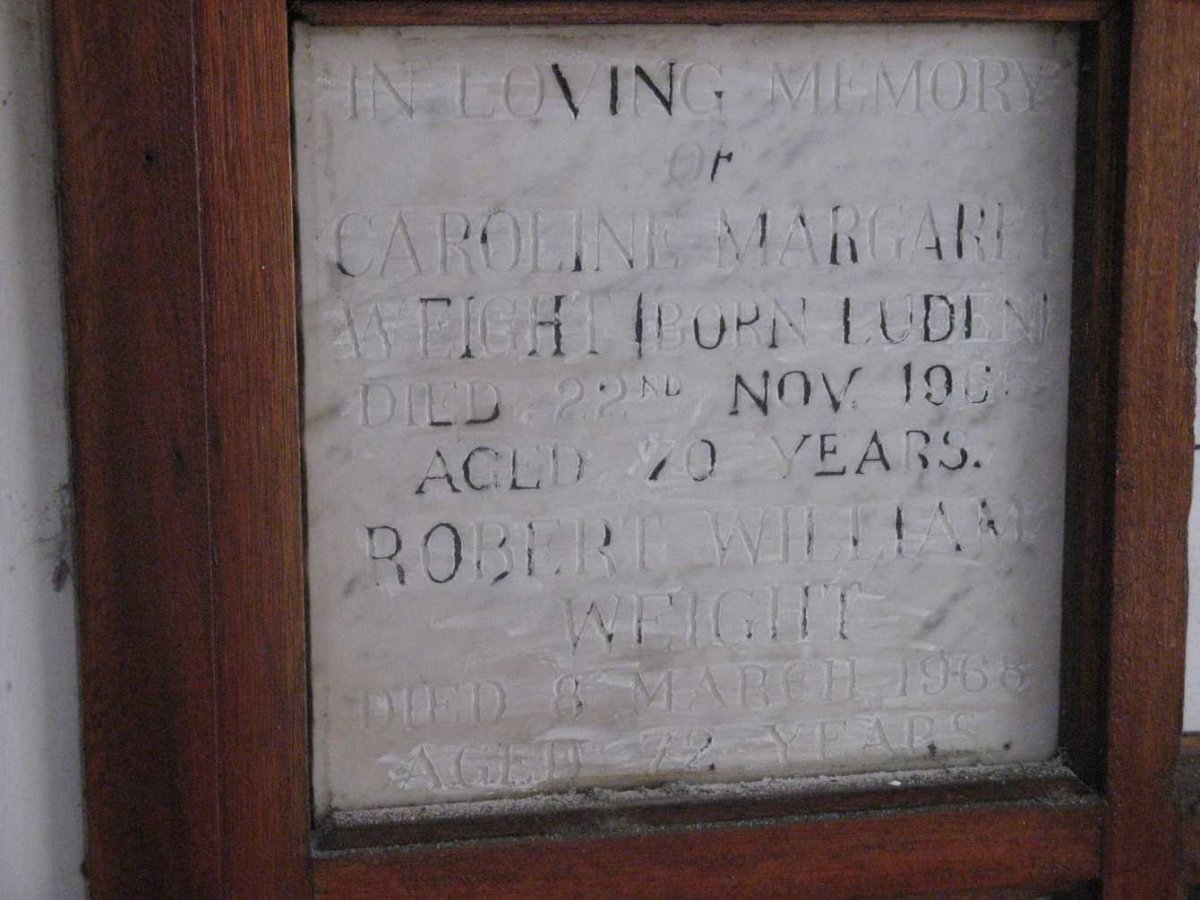 IN LOVING MEMORY
OF
CAROLINE MARGARET
WEIGHT (BORN LUDEN)
DIED 22ND NOV. 1965
AGED 70 YEARS.
ROBERT WILLIAM
WEIGHT
DIED 8 MARCH, 1968
AGED 72 YEARS